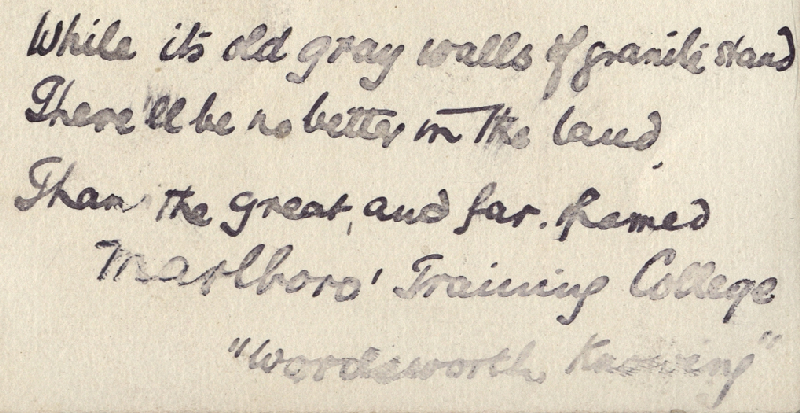 While its old gray walls of granite stand
There'll be no better in the land,
Than the great, and far. famed
Marlboro' Training College
"Wordsworth Knowing"